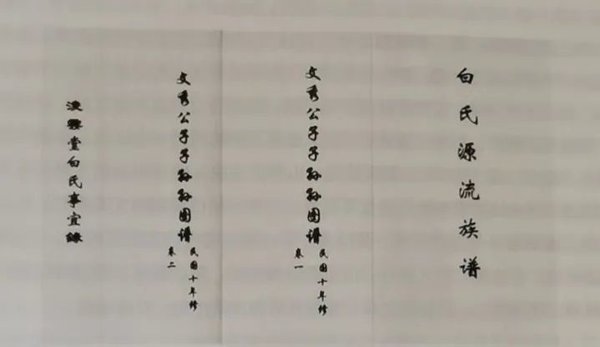 白氏源流族谱
文秀公子子孙孙图谱
民国十年修
卷一
文秀公子子孙孙图谱
民国十年修
卷二
堂白氏事宜录